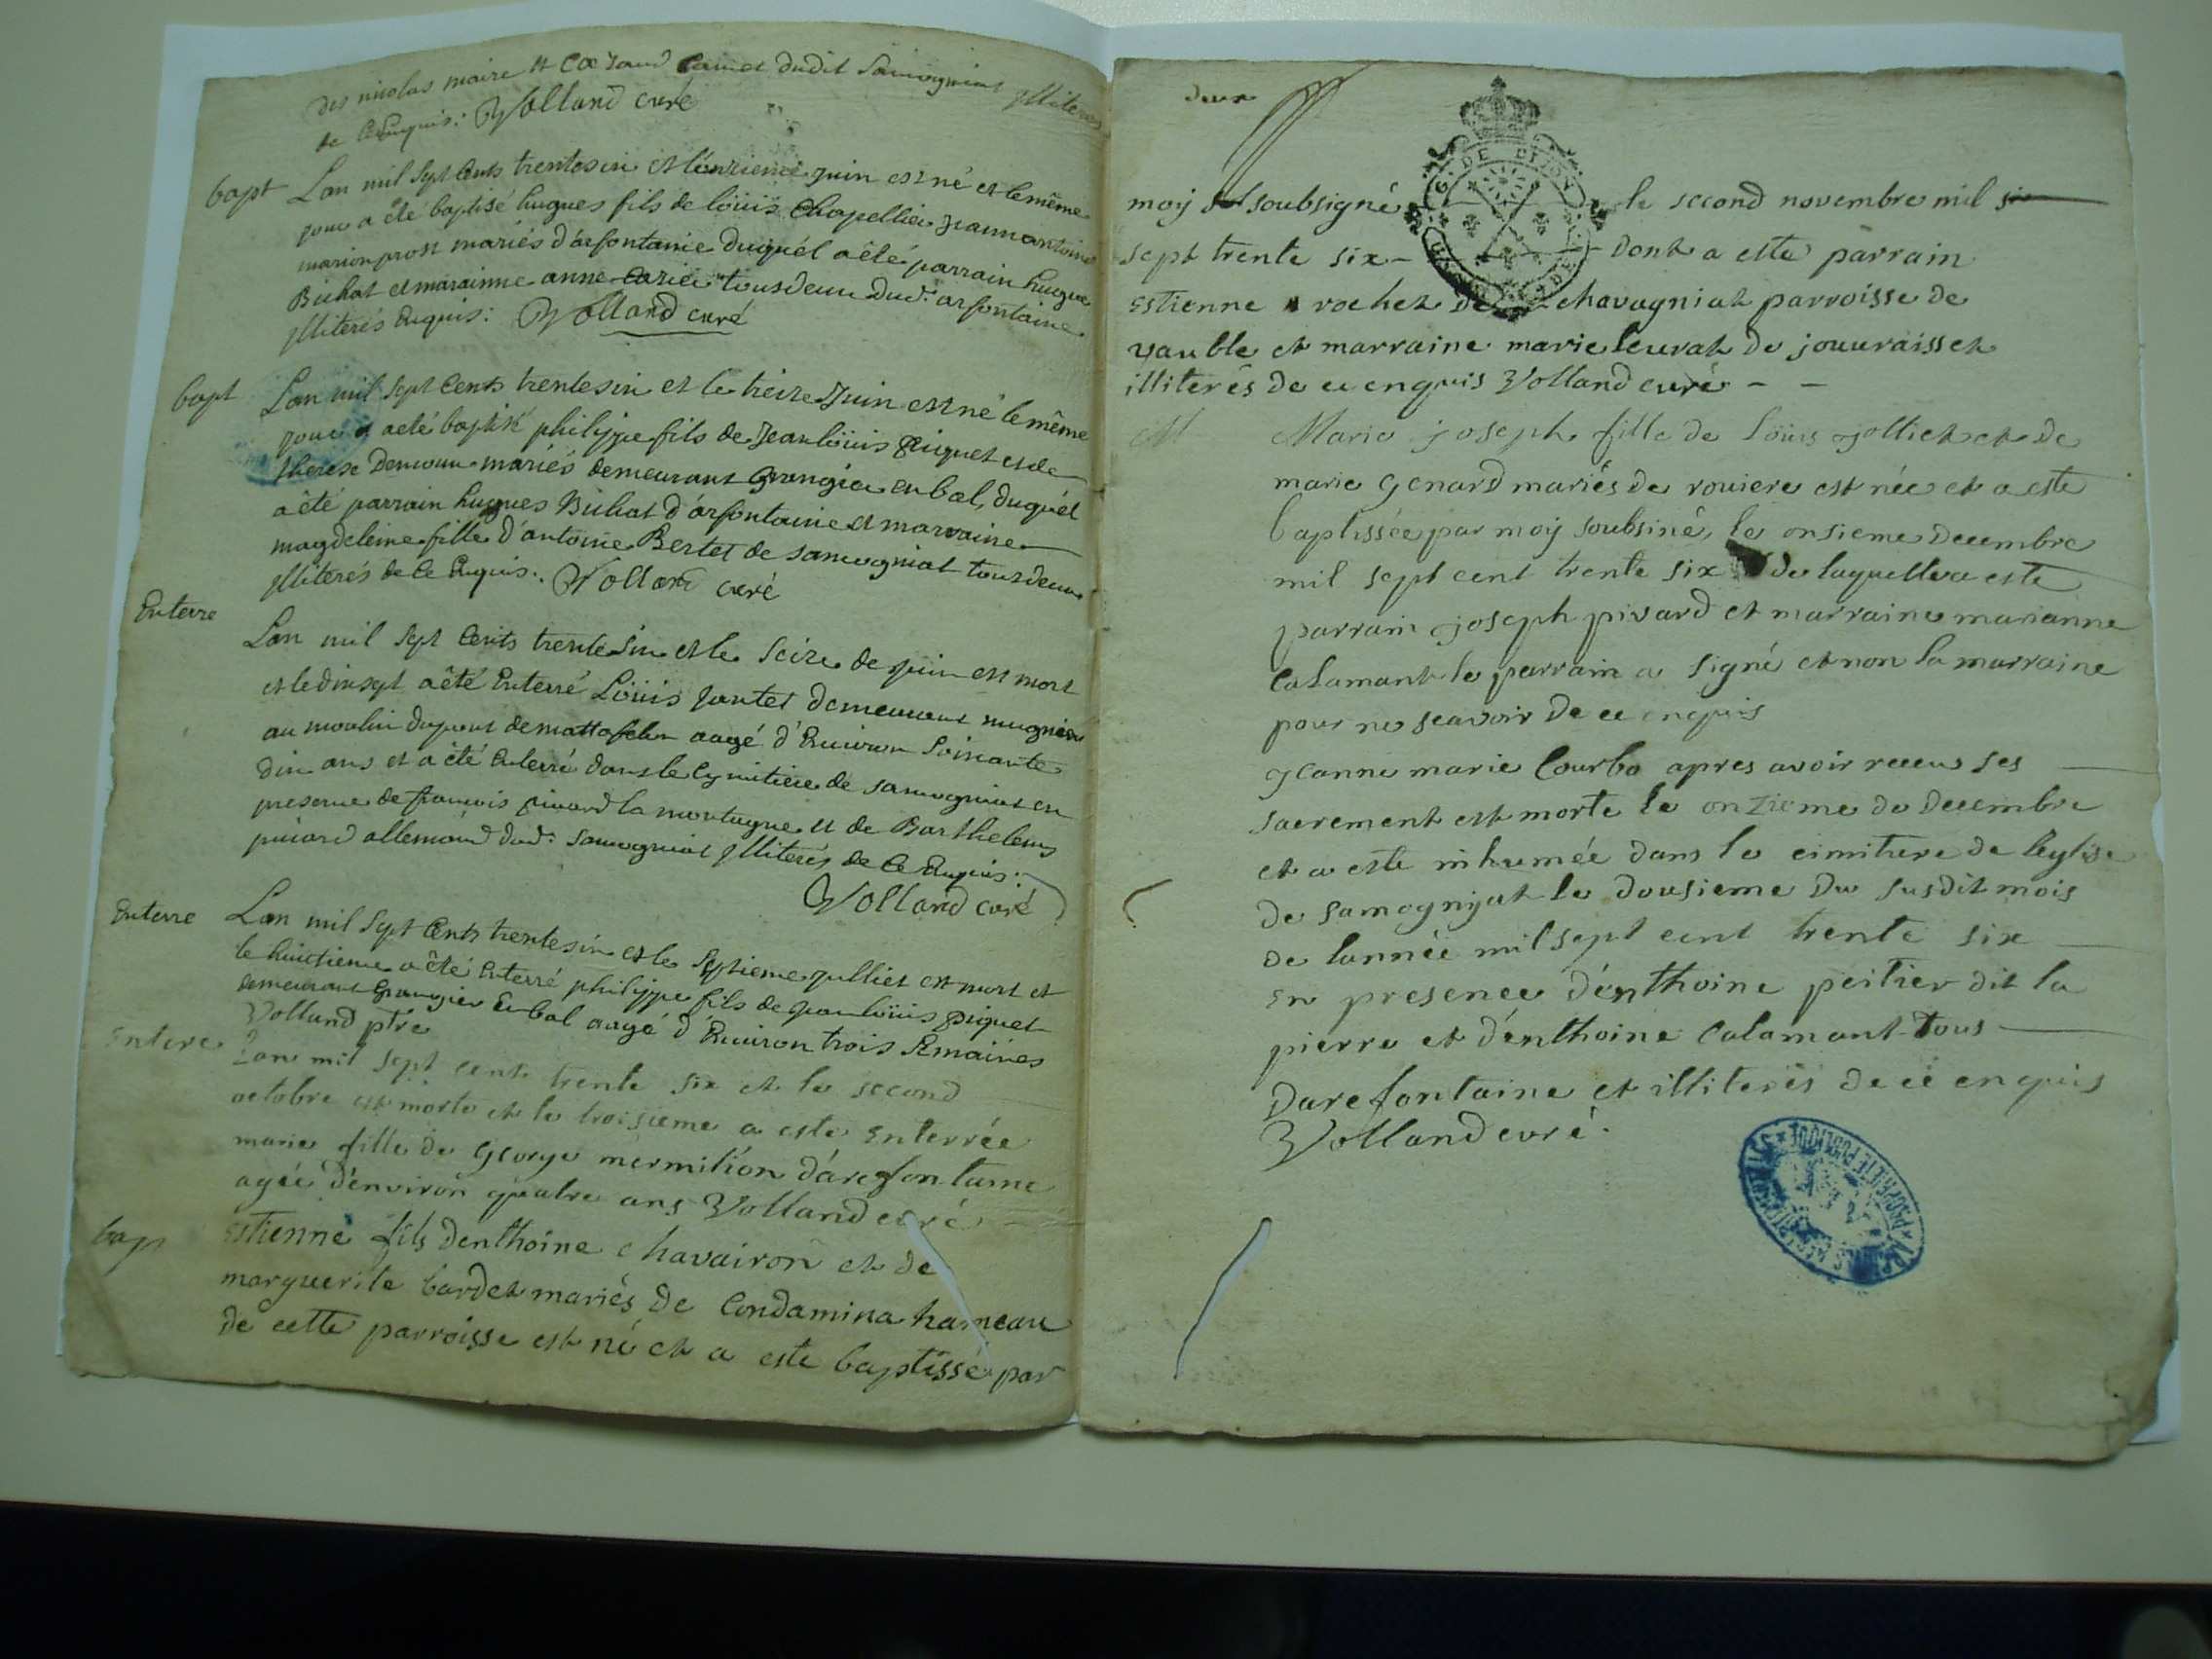 des nicolas maire et dudit Samogniat illiteres
de ce Enquis: Volland curé
bapt
Lan mil sept Cents trentesix et l'onzieme juin est né et le même
jour a êté baptisé hugues fils de löüis Chapellier jeanne antoine
marion prost mariés d'arfontaine duquél a êté parrain hugue
Buhat et maraine anne tous deux dud: arfontaine
illiterés Enquis: Volland curé
bapt
Lan mil sept Cents trentesix et le treize Juin est né le même
jour a aeté baptisé philippe fils de Jean löüis piquet et de
therese mariés demeurant Grangier en bal, duquél
a êté parrain hugues Buhat d'arfontaine et marraine
magdeleine fille d'antoine Bertet de samogniat tous deux
illiterés de Ce Enquis: Volland curé
Enterre
Lan mil sept Cents trente six et le seize de juin est mort
et le dixsept a êté Enterré Löüis jantet demeurant mugnier
au moulin du pont de mattafelon aagé d'Environ Soixante
dix ans et a êté Enterré dans le Cymitiere de samogniat en
presence de francois pivard la montagne et de Barthelemy
pivard allemand dud: samogniat illiterés de Ce Enquis:
Volland curé
Enterre
Lan mil sept Cents trentesix et le septieme julliet est mort et
le huictieme a êté Enterré philippe fils de jean löüis piquet
demeurant Grangier En bal aagé d'Environ trois semaines
Volland ptre
Entere
Lan mil sept cent trente six et le second
octobre est morte et le troisieme a este Enterrée
marie fille de George mermilion d'arefontaine
agée d'environ quatre ans Volland curé
bap
Estienne fils denthoine chavairon et de
marguerite bardet mariés de Condamina hameau
de cette parroisse est né et a este baptissé par
deux
G. DE DIJON
moÿ soubsigné le second novembre mil
sept trente six dont a este parrain
Estienne rochet de chavagniat parroisse de
vauble et marraine marie leurat de jouuraisset
illiterés de ce enquis Volland curé
Marie joseph fille de löüis jolliet et de
marie Genard mariés de roviere est née et a este
baptissée par moÿ soubsiné, le onsieme decembre
mil sept cent trente six de laquelle a este
parrain joseph pivard et marraine marianne
Calamant le parrain a signé et non la marraine
pour ne scavoir de ce enquis
Jeanne marie Courbo apres avoir receu ses
sacrement est morte le onzieme de decembre
et a este inhumée dans le cimitiere de leglise
de samognÿat le dousieme du susdit mois
de lannée mil sept cent trente six
En presence d'enthoine peitier dit la
pierre et d'enthoine Calamant tous
Darefontaine et illiterés de ce enquis
Volland curé.